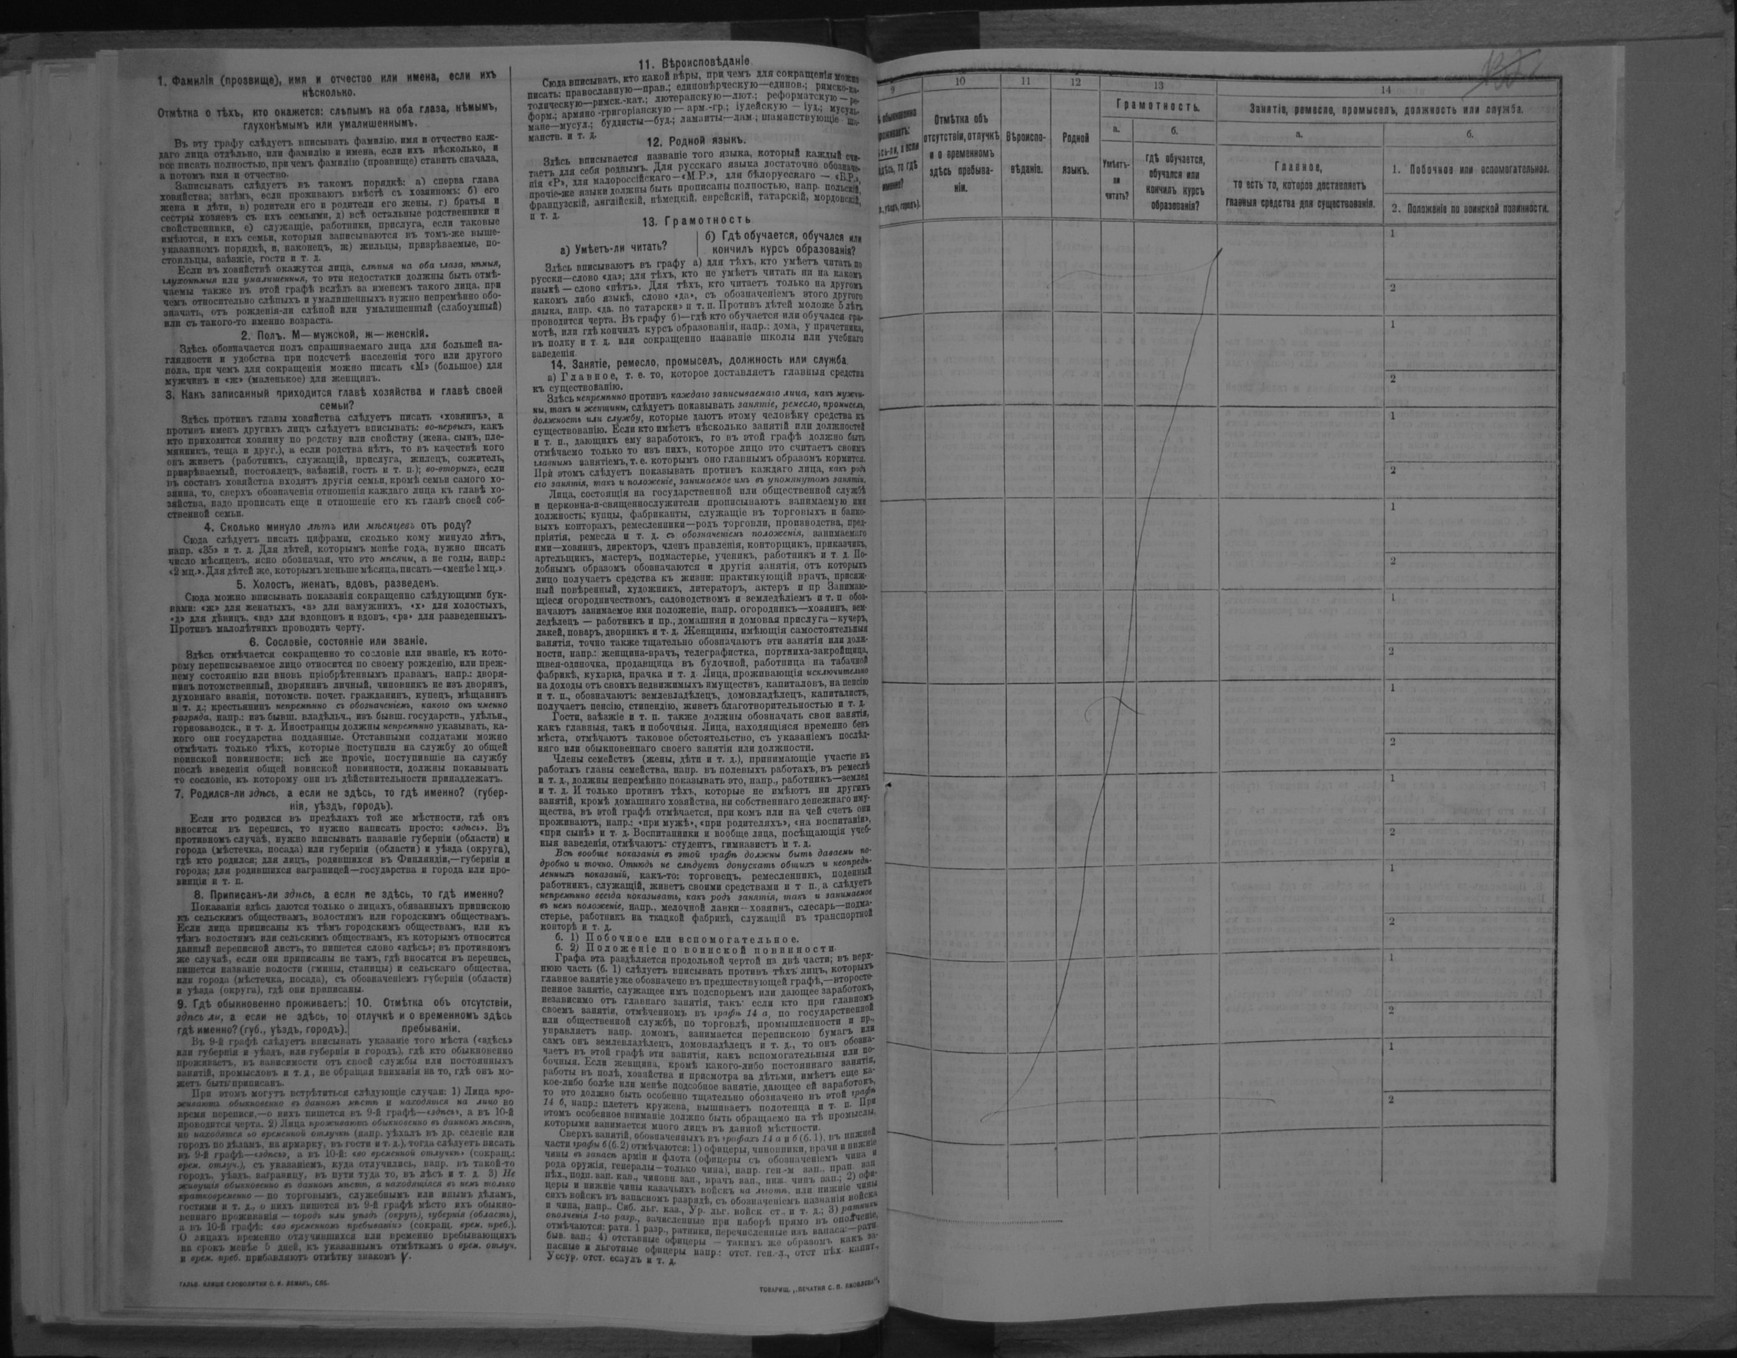 1. Фамилія (прозвище), имя и отчество или имена, если ихъ
нѣсколько.
Отмѣтка о тѣхъ, кто окажется: слѣпымъ на оба глаза, нѣмымъ,
глухонѣмымъ или умалишеннымъ.
Въ эту графу слѣдуетъ вписывать фамилію, имя и отчество каж-
даго лица отдѣльно, или фамилію и имена, если ихъ нѣсколько, и
все писать полностью, при чемъ фамилію (прозвище) ставить сначала,
а потомъ имя и отчество.
Записывать слѣдуетъ въ такомъ порядкѣ: а) сперва глава
хозяйства; затѣмъ, если проживаютъ вмѣстѣ съ хозяиномъ: б) его
жена и дѣти, в) родители его и родители его жены, г) братья и
сестры хозяевъ съ ихъ семьями, д) всѣ остальные родственники и
свойственники, е) служащіе, работники, прислуга, если таковые
имѣются, и ихъ семьи, которыя записываются въ томъ-же выше-
указанномъ порядкѣ, и, наконецъ, ж) жильцы, призрѣваемые, по-
стояльцы, заѣзжіе, гости и т. д.
Если въ хозяйствѣ окажутся лица, слѣпыя на оба глаза, нѣмыя,
глухонѣмыя или умалишенныя, то эти недостатки должны быть отмѣ-
чаемы также въ этой графѣ вслѣдъ за именемъ такого лица, при
чемъ относительно слѣпыхъ и умалишенныхъ нужно непремѣнно обо-
значать, отъ рожденія-ли слѣпой или умалишенный (слабоумный)
или съ такого-то именно возраста.
2. Полъ. М—мужской, ж—женскій.
Здѣсь обозначается полъ спрашиваемаго лица для большей на-
глядности и удобства при подсчетѣ населенія того или другого
пола, при чемъ для сокращенія можно писать «М» (большое) для
мужчинъ и «ж» (маленькое) для женщинъ.
3. Какъ записанный приходится главѣ хозяйства и главѣ своей
семьи?
Здѣсь противъ главы хозяйства слѣдуетъ писать «хозяинъ», а
противъ именъ другихъ лицъ слѣдуетъ вписывать: во-первыхъ, какъ
кто приходится хозяину по родству или свойству (жена, сынъ, пле-
мянникъ, теща и друг.), а если родства нѣтъ, то въ качествѣ кого
онъ живетъ (работникъ, служащій, прислуга, жилецъ, сожитель,
призрѣваемый, постоялецъ, заѣзжій, гость и т. п.); во-вторыхъ, если
въ составъ хозяйства входятъ другія семьи, кромѣ семьи самого хо-
зяина, то, сверхъ обозначенія отношенія каждаго лица къ главѣ хо-
зяйства, надо прописать еще и отношеніе его къ главѣ своей соб-
ственной семьи.
4. Сколько минуло лѣтъ или мѣсяцевъ отъ роду?
Сюда слѣдуетъ писать цифрами, сколько кому минуло лѣтъ,
напр. «35» и т. д. Для дѣтей, которымъ менѣе года, нужно писать
число мѣсяцевъ, ясно обозначая, что это мѣсяцы, а не годы, напр.:
«2 мц.». Для дѣтей же, которымъ меньше мѣсяца, писать—«менѣе 1 мц.»
5. Холостъ, женатъ, вдовъ, разведенъ.
Сюда можно вписывать показанія сокращенно слѣдующими бук-
вами: «ж» для женатыхъ, «з» для замужнихъ, «х» для холостыхъ,
«д» для дѣвицъ, «вд» для вдовцовъ и вдовъ, «рз» для разведенныхъ.
Противъ малолѣтнихъ проводить черту.
6. Сословіе, состояніе или званіе.
Здѣсь отмѣчается сокращенно то сословіе или званіе, къ кото-
рому переписываемое лицо относится по своему рожденію, или преж-
нему состоянію или вновь пріобрѣтеннымъ правамъ, напр.: дворя-
нинъ потомственный, дворянинъ личный, чиновникъ не изъ дворянъ,
духовнаго званія, потомств. почет. гражданинъ, купецъ, мѣщанинъ
и т. д.; крестьянинъ непремѣнно съ обозначеніемъ, какого онъ именно
разряда, напр.: изъ бывш. владѣльч., изъ бывш. государств., удѣльн.,
горнозаводск., и т. д. Иностранцы должны непремѣнно указывать, ка-
кого они государства подданные. Отставными солдатами можно
отмѣчать только тѣхъ, которые поступили на службу до общей
воинской повинности; всѣ же прочіе, поступившіе на службу
послѣ введенія общей воинской повинности, должны показывать
то сословіе, къ которому они въ дѣйствительности принадлежатъ.
7. Родился-ли здѣсь, а если не здѣсь, то гдѣ именно? (губер-
нія, уѣздъ, городъ).
Если кто родился въ предѣлахъ той же мѣстности, гдѣ онъ
вносится въ перепись, то нужно написать просто: «здѣсь». Въ
противномъ случаѣ, нужно вписывать названіе губерніи (области) и
города (мѣстечка, посада) или губерніи (области) и уѣзда (округа),
гдѣ кто родился; для лицъ, родившихся въ Финляндіи,—губерніи и
города; для родившихся заграницей—государства и города или про-
винціи и т. п.
8. Приписанъ-ли здѣсь, а если не здѣсь, то гдѣ именно?
Показанія здѣсь даются только о лицахъ, обязанныхъ припискою
къ сельскимъ обществамъ, волостямъ или городскимъ обществамъ.
Если лица приписаны къ тѣмъ городскимъ обществамъ, или къ
тѣмъ волостямъ или сельскимъ обществамъ, къ которымъ относится
данный переписной листъ, то пишется слово «здѣсь»; въ противномъ
же случаѣ, если они приписаны не тамъ, гдѣ вносятся въ перепись,
пишется названіе волости (гмины, станицы) и сельскаго общества,
или города (мѣстечка, посада), съ обозначеніемъ губерніи (области)
и уѣзда (округа), гдѣ они приписаны.
9. Гдѣ обыкновенно проживаетъ:
здѣсь ли, а если не здѣсь, то
гдѣ именно? (губ., уѣздъ, городъ).
10. Отмѣтка объ отсутствіи,
отлучкѣ и о временномъ здѣсь
пребываніи.
Въ 9-й графѣ слѣдуетъ вписывать указаніе того мѣста («здѣсь»
или губернія и уѣздъ, или губернія и городъ), гдѣ кто обыкновенно
проживаетъ, въ зависимости отъ своей службы или постоянныхъ
занятій, промысловъ и т. д., не обращая вниманія на то, гдѣ онъ мо-
жетъ быть приписанъ.
При этомъ могутъ встрѣтиться слѣдующіе случаи: 1) Лица про-
живаютъ обыкновенно въ данномъ мѣстѣ и находятся на лицо во
время переписи,—о нихъ пишется въ 9-й графѣ—«здѣсь», а въ 10-й
проводится черта. 2) Лица проживаютъ обыкновенно въ данномъ мѣстѣ,
но находятся во временной отлучкѣ (напр. уѣхалъ въ др. селеніе или
городъ по дѣламъ, на ярмарку, въ гости и т. д.), тогда слѣдуетъ писать
въ 9-й графѣ—«здѣсь», а въ 10-й: «во временной отлучкѣ» (сокращ.:
врем. отлуч.), съ указаніемъ, куда отлучились, напр. въ такой-то
городъ, уѣздъ, заграницу, въ пути туда то, въ лѣсъ и т. д. 3) Не
живущія обыкновенно въ данномъ мѣстѣ, а находящіяся въ немъ только
кратковременно — по торговымъ, служебнымъ или инымъ дѣламъ,
гостями и т. д., о нихъ пишется въ 9-й графѣ мѣсто ихъ обыкно-
веннаго проживанія — городъ или уѣздъ (округъ), губернія (область),
а въ 10-й графѣ: «во временномъ пребываніи» (сокращ. врем. преб.).
О лицахъ временно отлучившихся или временно пребывающихъ
на срокъ менѣе 5 дней, къ указаннымъ отмѣткамъ о врем. отлуч.
и врем. преб. прибавляютъ отмѣтку знакомъ V.
11. Вѣроисповѣданіе
Сюда вписывать, кто какой вѣры, при чемъ для сокращенія можно
писать: православную—прав.; единовѣрческую—единов.; римско-ка-
толическую—римск.-кат.; лютеранскую—лют.; реформатскую—ре-
форм.; армяно-григоріанскую—арм.-гр.; іудейскую—іуд.; мусуль-
мане—мусул.; буддисты—буд.; ламаиты—лам.; шаманствующіе—ша-
манств. и т. д.
12. Родной языкъ.
Здѣсь вписывается названіе того языка, который каждый счи-
таетъ для себя роднымъ. Для русскаго языка достаточно обозначе-
нія «Р», для малороссійскаго—«М.Р.», для бѣлорусскаго—«Б.Р.»,
прочіе-же языки должны быть прописаны полностью, напр. польскій,
французскій, англійскій, нѣмецкій, еврейскій, татарскій, мордовскій,
и т. д.
13. Грамотность
а) Умѣетъ-ли читать?
б) Гдѣ обучается, обучался или
кончилъ курсъ образованія?
Здѣсь вписываютъ въ графу а) для тѣхъ, кто умѣетъ читать по
русски—слово «да»; для тѣхъ, кто не умѣетъ читать ни на какомъ
языкѣ—слово «нѣтъ». Для тѣхъ, кто читаетъ только на другомъ
какомъ либо языкѣ, слово «да», съ обозначеніемъ этого другого
языка, напр. «да, по татарски» и т. п. Противъ дѣтей моложе 5 лѣтъ
проводится черта. Въ графу б)—гдѣ кто обучается или обучался гра-
мотѣ, или гдѣ кончилъ курсъ образованія, напр.: дома, у причетника,
въ полку и т. д. или сокращенно названіе школы или учебнаго
заведенія.
14. Занятіе, ремесло, промыселъ, должность или служба.
а) Главное, т. е. то, которое доставляетъ главныя средства
къ существованію.
Здѣсь непремѣнно противъ каждаго записываемаго лица, какъ мужчи-
ны, такъ и женщины, слѣдуетъ показывать занятіе, ремесло, промыселъ,
должность или службу, которые даютъ этому человѣку средства къ
существованію. Если кто имѣетъ нѣсколько занятій или должностей
и т. п., дающихъ ему заработокъ, то въ этой графѣ должно быть
отмѣчаемо только то изъ нихъ, которое лицо это считаетъ своимъ
главнымъ занятіемъ, т. е. которымъ оно главнымъ образомъ кормится.
При этомъ слѣдуетъ показывать противъ каждаго лица, какъ родъ
его занятія, такъ и положеніе, занимаемое имъ въ упомянутомъ занятіи.
Лица, состоящія на государственной или общественной службѣ
и церковно-и-священнослужители прописываютъ занимаемую ими
должность; купцы, фабриканты, служащіе въ торговыхъ и банко-
выхъ конторахъ, ремесленники—родъ торговли, производства, пред-
пріятія, ремесла и т. д. съ обозначеніемъ положенія, занимаемаго
ими—хозяинъ, директоръ, членъ правленія, конторщикъ, приказчикъ,
артельщикъ, мастеръ, подмастерье, ученикъ, работникъ и т. д. По-
добнымъ образомъ обозначаются и другія занятія, отъ которыхъ
лицо получаетъ средства къ жизни: практикующій врачъ, присяж-
ный повѣренный, художникъ, литераторъ, актеръ и пр. Занимаю-
щіеся огородничествомъ, садоводствомъ и земледѣліемъ и т. п. обоз-
начаютъ занимаемое ими положеніе, напр. огородникъ—хозяинъ, зем-
ледѣлецъ — работникъ и пр., домашняя и домовая прислуга—кучеръ,
лакей, поваръ, дворникъ и т. д. Женщины, имѣющія самостоятельныя
занятія, точно также тщательно обозначаютъ эти занятія или долж-
ности, напр.: женщина-врачъ, телеграфистка, портниха-закройщица,
швея-одиночка, продавщица въ булочной, работница на табачной
фабрикѣ, кухарка, прачка и т. д. Лица, проживающія исключительно
на доходы отъ своихъ недвижимыхъ имуществъ, капиталовъ, на пенсію
и т. п., обозначаютъ: землевладѣлецъ, домовладѣлецъ, капиталистъ,
получаетъ пенсію, стипендію, живетъ благотворительностью и т. д.
Гости, заѣзжіе и т. п. также должны обозначать свои занятія,
какъ главныя, такъ и побочныя. Лица, находящіяся временно безъ
мѣста, отмѣчаютъ таковое обстоятельство, съ указаніемъ послѣд-
няго или обыкновеннаго своего занятія или должности.
Члены семействъ (жены, дѣти и т. д.), принимающіе участіе въ
работахъ главы семейства, напр. въ полевыхъ работахъ, въ ремеслѣ
и т. д., должны непремѣнно показывать это, напр., работникъ—землед.
и т. д. И только противъ тѣхъ, которые не имѣютъ ни другихъ
занятій, кромѣ домашняго хозяйства, ни собственнаго денежнаго иму-
щества, въ этой графѣ отмѣчается, при комъ или на чей счетъ они
проживаютъ, напр.: «при мужѣ», «при родителяхъ», «на воспитаніи»,
«при сынѣ» и т. д. Воспитанники и вообще лица, посѣщающія учеб-
ныя заведенія, отмѣчаютъ: студентъ, гимназистъ и т. д.
Всѣ вообще показанія въ этой графѣ должны быть даваемы по-
дробно и точно. Отнюдь не слѣдуетъ допускать общихъ и неопредѣ-
ленныхъ показаній, какъ-то: торговецъ, ремесленникъ, поденный
работникъ, служащій, живетъ своими средствами и т. п., а слѣдуетъ
непремѣнно всегда показывать, какъ родъ занятія, такъ и занимаемое
въ немъ положеніе, напр., мелочной лавки—хозяинъ, слесарь—подма-
стерье, работникъ на ткацкой фабрикѣ, служащій въ транспортной
конторѣ и т. д.
б. 1) Побочное или вспомогательное.
б. 2) Положеніе по воинской повинности.
Графа эта раздѣляется продольной чертой на двѣ части; въ верх-
нюю часть (б. 1) слѣдуетъ вписывать противъ тѣхъ лицъ, которыхъ
главное занятіе уже обозначено въ предшествующей графѣ,—второсте-
пенное занятіе, служащее имъ подспорьемъ или дающее заработокъ,
независимо отъ главнаго занятія, такъ: если кто при главномъ
своемъ занятіи, отмѣченномъ въ графѣ 14 а, по государственной
или общественной службѣ, по торговлѣ, промышленности и пр.,
управляетъ напр. домомъ, занимается перепискою бумагъ или
самъ онъ землевладѣлецъ, домовладѣлецъ и т. д., то онъ обозна-
чаетъ въ этой графѣ эти занятія, какъ вспомогательныя или по-
бочныя. Если женщина, кромѣ какого-либо постояннаго занятія,
работы въ полѣ, хозяйства и присмотра за дѣтьми, имѣетъ еще ка-
кое-либо болѣе или менѣе подсобное занятіе, дающее ей заработокъ,
то это должно быть особенно тщательно обозначено въ этой графѣ
14 б, напр.: плететъ кружева, вышиваетъ полотенца и т. п. При
этомъ особенное вниманіе должно быть обращаемо на тѣ промыслы,
которыми занимается много лицъ въ данной мѣстности.
Сверхъ занятій, обозначенныхъ въ графахъ 14 а и б (б. 1), въ нижней
части графы б (б. 2) отмѣчаются: 1) офицеры, чиновники, врачи и нижніе
чины въ запасѣ арміи и флота (офицеры съ обозначеніемъ чина и
рода оружія, генералы—только чина), напр. ген-м зап., прап. зап.
пѣх., подп. зап. кав., чиновн. зап., врачъ зап., ниж. чинъ зап.; 2) офи-
церы и нижніе чины казачьихъ войскъ на льготѣ, или нижніе чины
сихъ войскъ въ запасномъ разрядѣ, съ обозначеніемъ названія войска
и чина, напр. Сиб. льг. каз., Ур. льг. войск. ст. и т. д.; 3) ратники
ополченія 1-го разр., зачисленные при наборѣ прямо въ ополченіе,
отмѣчаются: ратн. 1 разр., ратники, перечисленные изъ запаса:—ратн.
быв. зап.; 4) отставные офицеры — такимъ же образомъ какъ за-
пасные и льготные офицеры напр.: отст. ген.-л., отст. пѣх. капит.,
Уссур. отст. есаулъ и т. д.
9
10
11
12
13
14
Отмѣтка объ
отсутствіи, отлучкѣ
и о временномъ
здѣсь пребыва-
ніи.
Вѣроиспо-
вѣданіе.
Родной
языкъ.
Грамотность.
а.
Умѣетъ-
ли
читать?
б.
гдѣ обучается,
обучался или
кончилъ курсъ
образованія?
Занятіе, ремесло, промыселъ, должность или служба.
а.
Главное,
то есть то, которое доставляетъ
главныя средства для существованія.
б.
1. Побочное или вспомогательное.
2. Положеніе по воинской повинности.
1
2
1
2
1
2
1
2
1
2
1
2
1
2
1
2
1
2
1
2